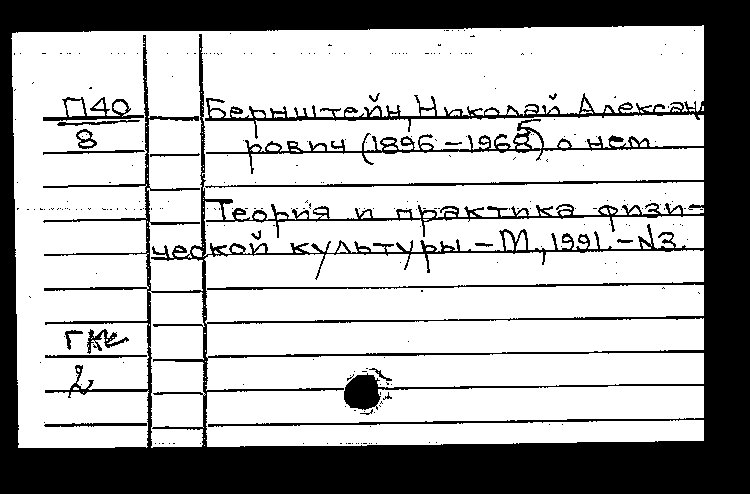 П40
8
Бернштейн, Николай Александ
рович (1896-1968) о нем.
Теория и практика физи-
ческой культуры. - М., 1991. - №3.
ГАК
2